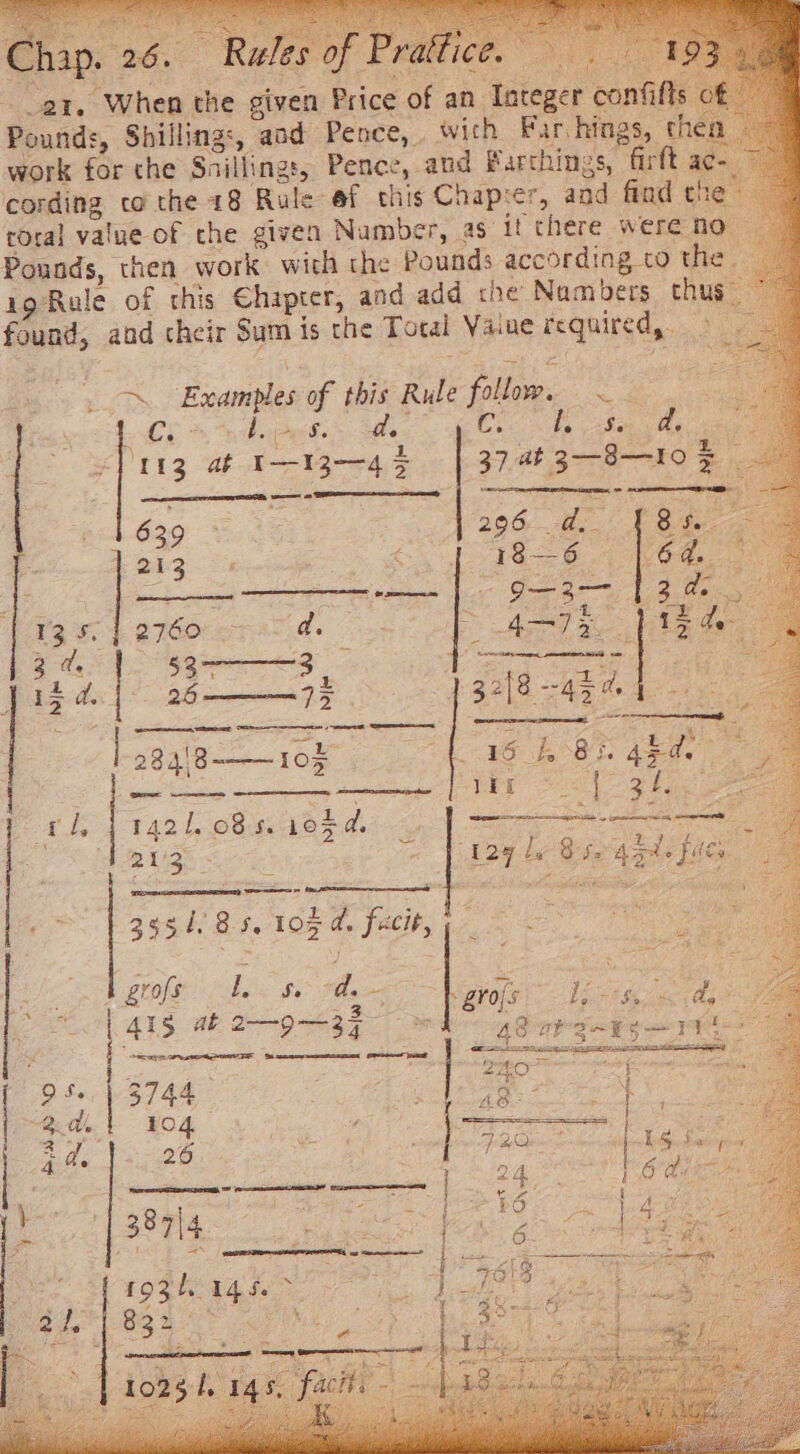 Chap. 26. Rules of Practice. 193
21. When the given Price of an Integer consists of
Pounds, Shillings, and Pence, with Farthings, then
work for the Shillings, Pence, and Farthings, first ac-
cording to the 18 Rule of this Chapter, and find the
total value of the given Number, as if there were no
Pounds, then work with the Pounds according to the
19 Rule of this Chapter, and add the Numbers thus
found, and their Sum is the Total Value required,
Examples of this Rule follow.
C. l. s. d.
113 at 1—13—4 ½
639
213
13 s. 2760 d.
3 d. 53———3
1½ d. 26———7½
284|8——10½
1 l. 142 l. 08 s. 10½ d.
213
355 l. 8 s. 10½ d. facit,
gross l. s. d.
415 at 2—9—3¾
9 s. 3744
2 d. 104
¾ d. 26
387|4
193 l. 14 s.
2 l. 832
1025 l. 14 s. facit.
C. l. s. d.
37 at 3—8—10 ½
296 d. 8 s.
18—6 6 d.
9—3— 3 d.
4—7½ 1½ d.
32|8 --4½ d.
16 l. 8 s. 4½ d.
111 3 l.
127 l. 8 s. 4½ d. fac.
gross l. s. d.
48 at 2—15—11
240
48
720 15 s.
24 6 d.
16 4
6
76|8
38
K